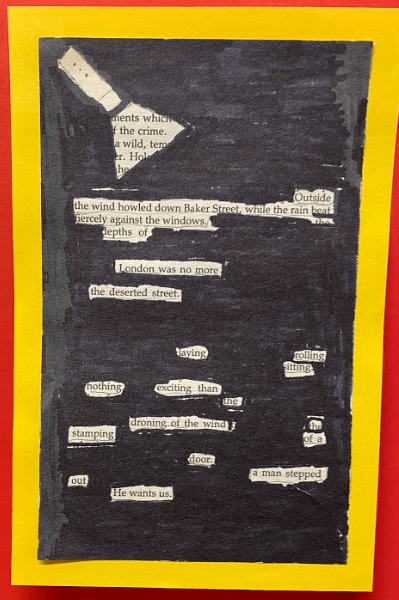 ments which
f the crime.
a wild, tem
er. Hol
ho
Outside
the wind howled down Baker Street, while the rain beat
fiercely against the windows. the
depths of
London was no more
the deserted street.
laying rolling
sitting
nothing exciting than
the
droning of the wind the
stamping of a
door.
a man stepped
out
He wants us.